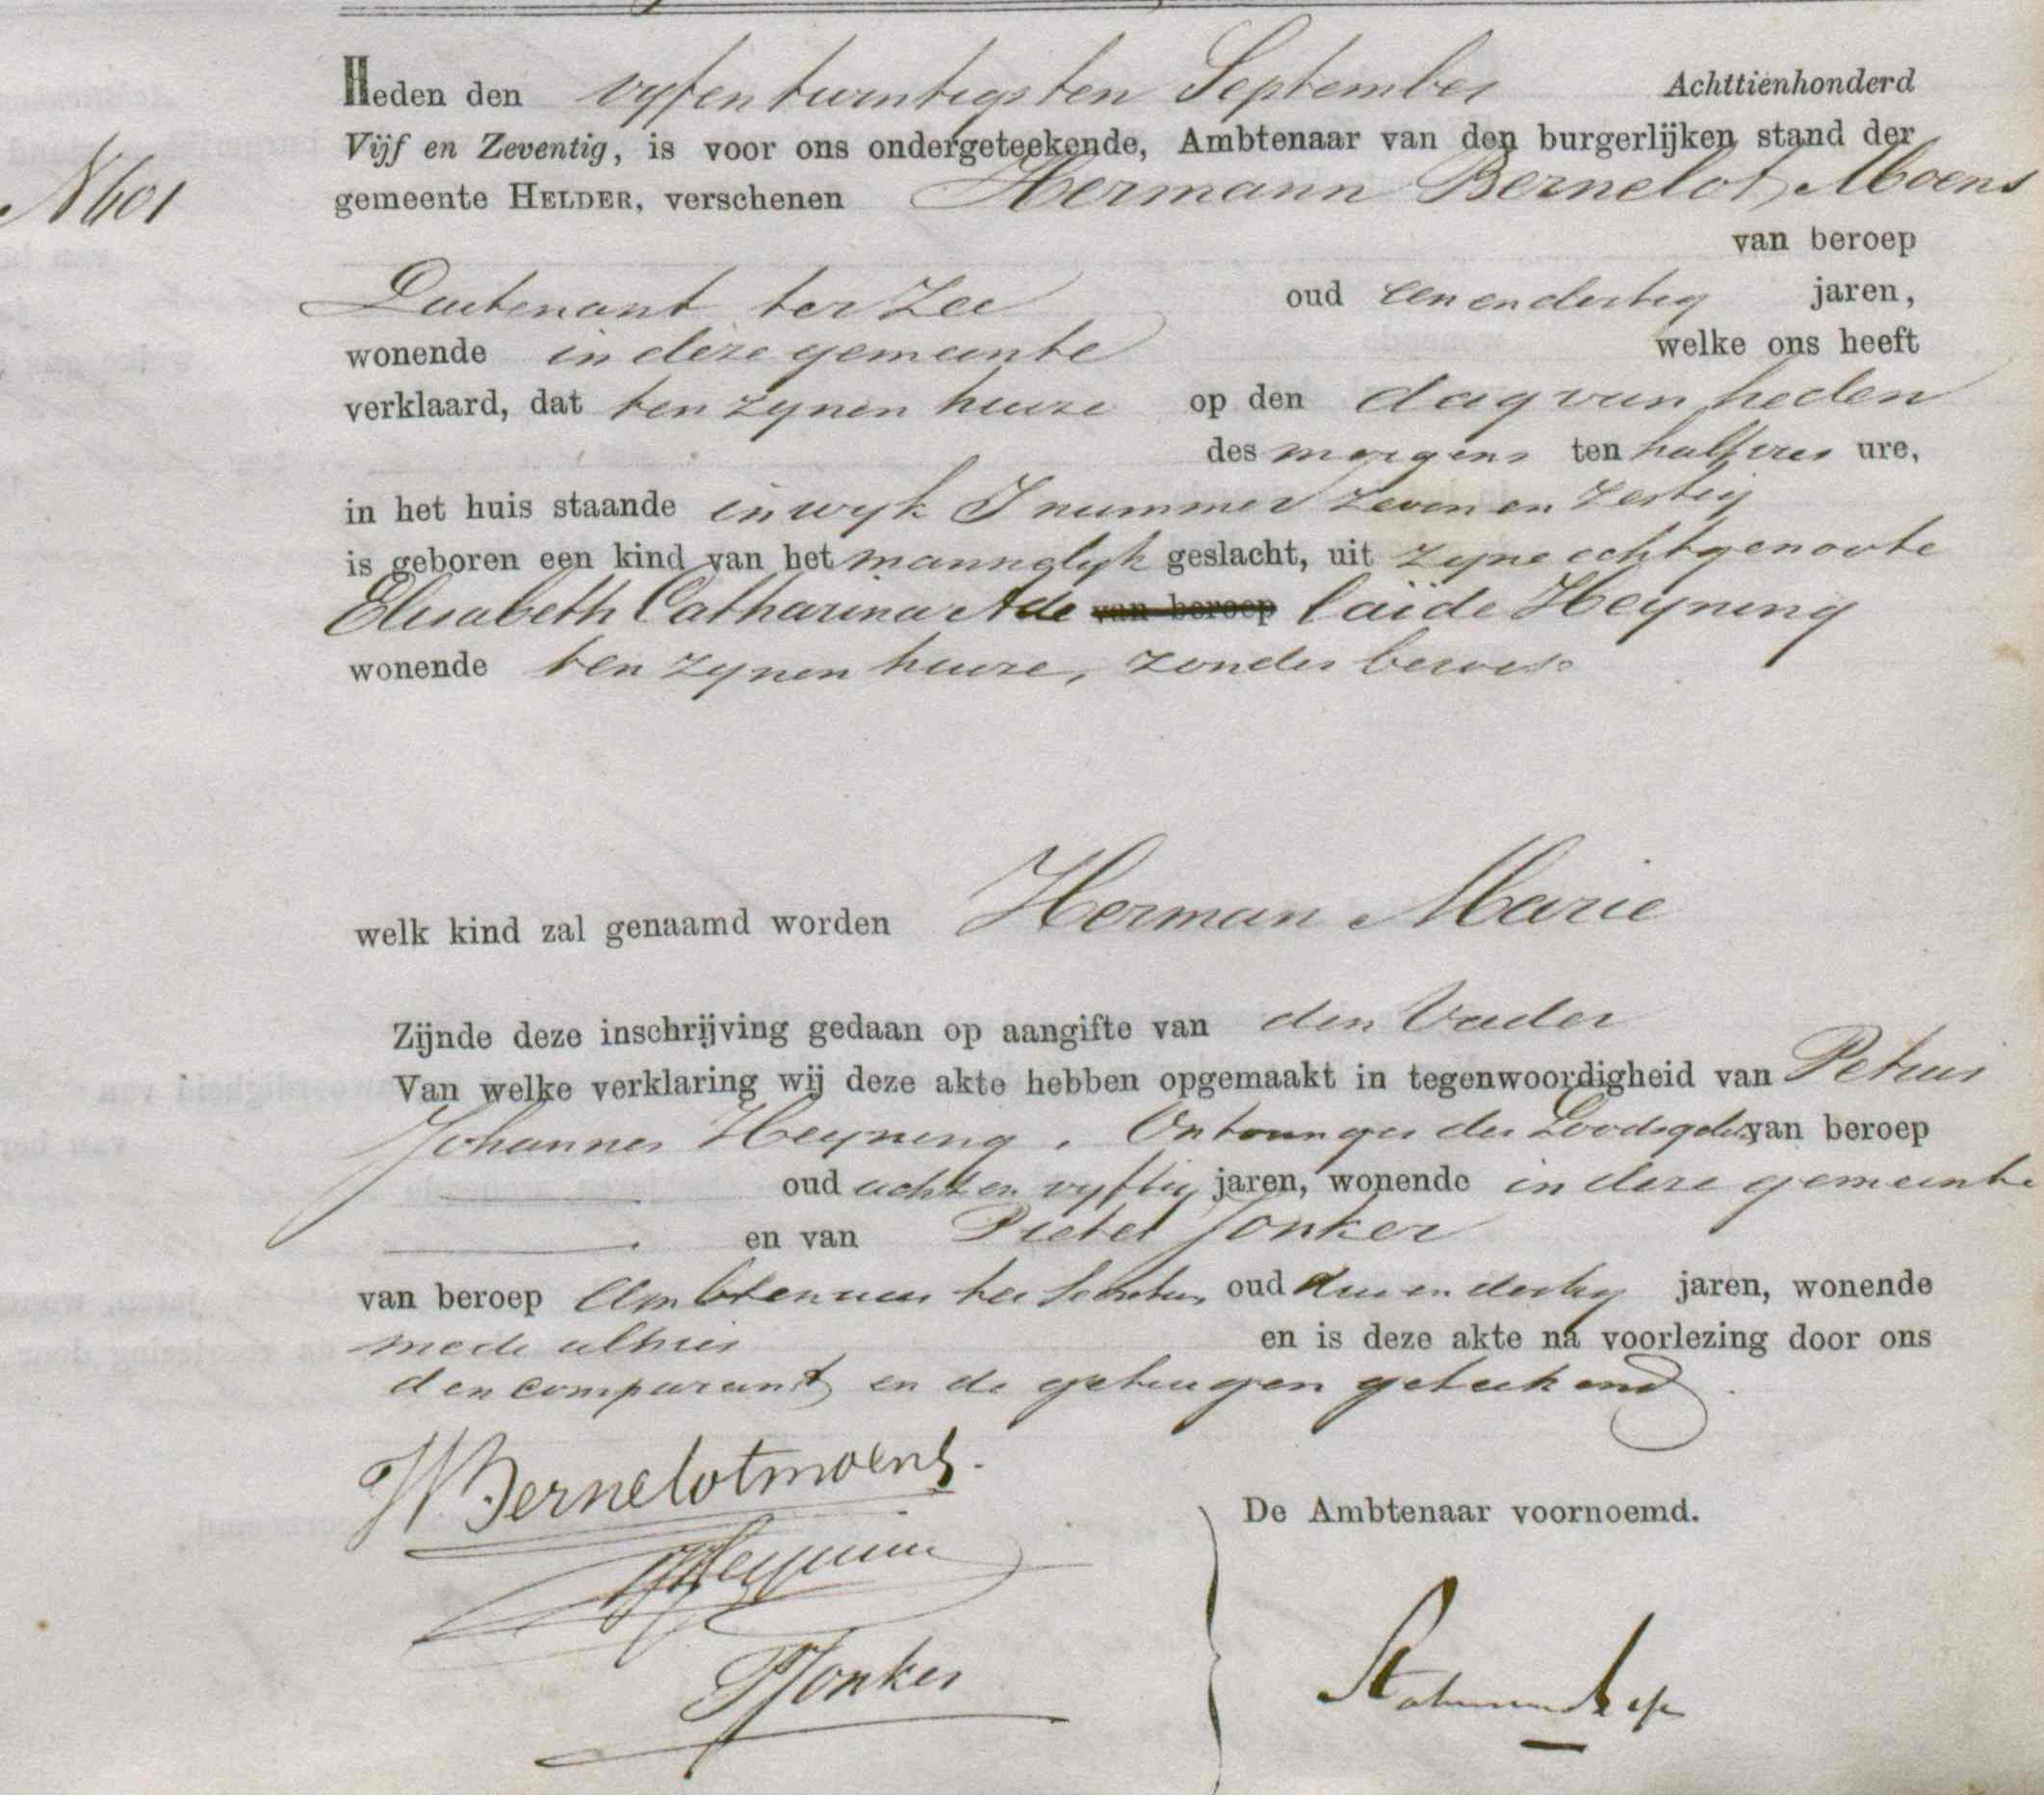 Heden den vyfentwintigsten September Achttienhonderd
Vijf en Zeventig, is voor ons ondergeteekende, Ambtenaar van den burgerlijken stand der
N 601
gemeente HELDER, verschenen Hermann Bernelot Moens
van beroep
Luitenant ter Zee oud een en dertig jaren,
wonende in deze gemeente welke ons heeft
verklaard, dat ten zynen huize op den dag van heden
des morgens ten half vier ure,
in het huis staande in wyk I nummer zeven en zestig
is geboren een kind van het mannelyk geslacht, uit zyne echtgenoote
Elisabeth Catharina Ade van beroep laïde Heyning
wonende ten zynen huize, zonder beroep
welk kind zal genaamd worden Herman Marie
Zijnde deze inschrijving gedaan op aangifte van den Vader
Van welke verklaring wij deze akte hebben opgemaakt in tegenwoordigheid van Petrus
Johannes Heyning, Ontvanger der Loodsgelden van beroep
oud acht en vyftig jaren, wonende in deze gemeente
en van Pieter Jonker
van beroep Ambtenaar ter Secretarie oud drie en dertig jaren, wonende
mede alhier en is deze akte na voorlezing door ons
den comparant en de getuigen geteekend.
HBernelotmoens.
De Ambtenaar voornoemd.
PJHeyning
PJonker